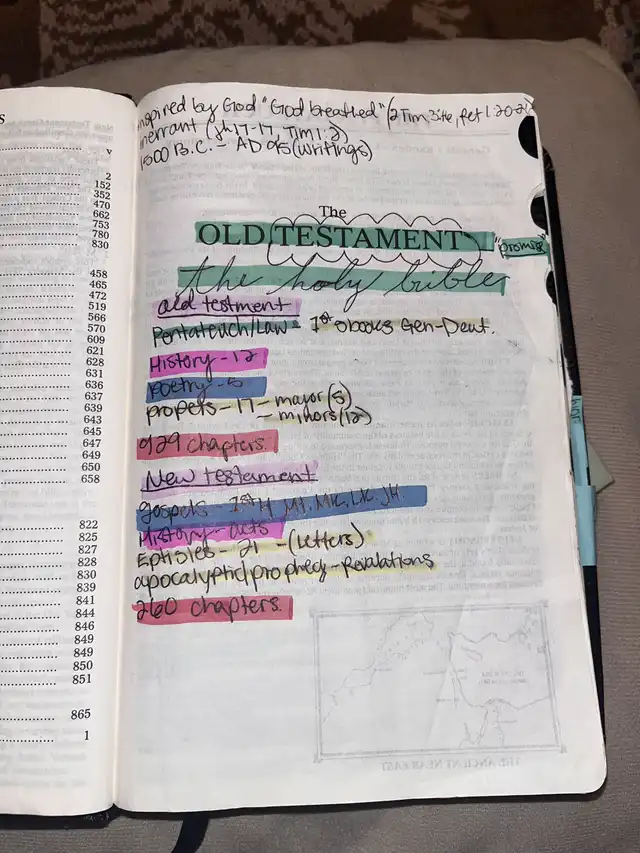 s
v
2
152
352
470
662
753
780
830
458
465
472
519
566
570
609
621
628
631
636
637
639
643
645
647
649
650
658
822
825
827
828
830
839
841
844
846
849
849
850
851
865
1
inspired by God "God breathed" (2 Tim 3:16, Pet 1:20-21
inerrant (jh 17-17, Tim 1:2)
1500 B.C. - AD 95 (writings)
The
OLD TESTAMENT "promise"
the holy bible
old testment
Pentateuch/Law = 1st 5 books Gen-Deut.
History - 12
Poetry - 5
propets - 17 - major (5)
- minors (12)
929 chapters.
New testament
gospels 1st 4 Mt. Mk. Lk. JH.
History - acts
Epitsles - 21 - (Letters)
apocalyptic/prophecy - Revalations
260 chapters.
THE ANCIENT NEAR EAST